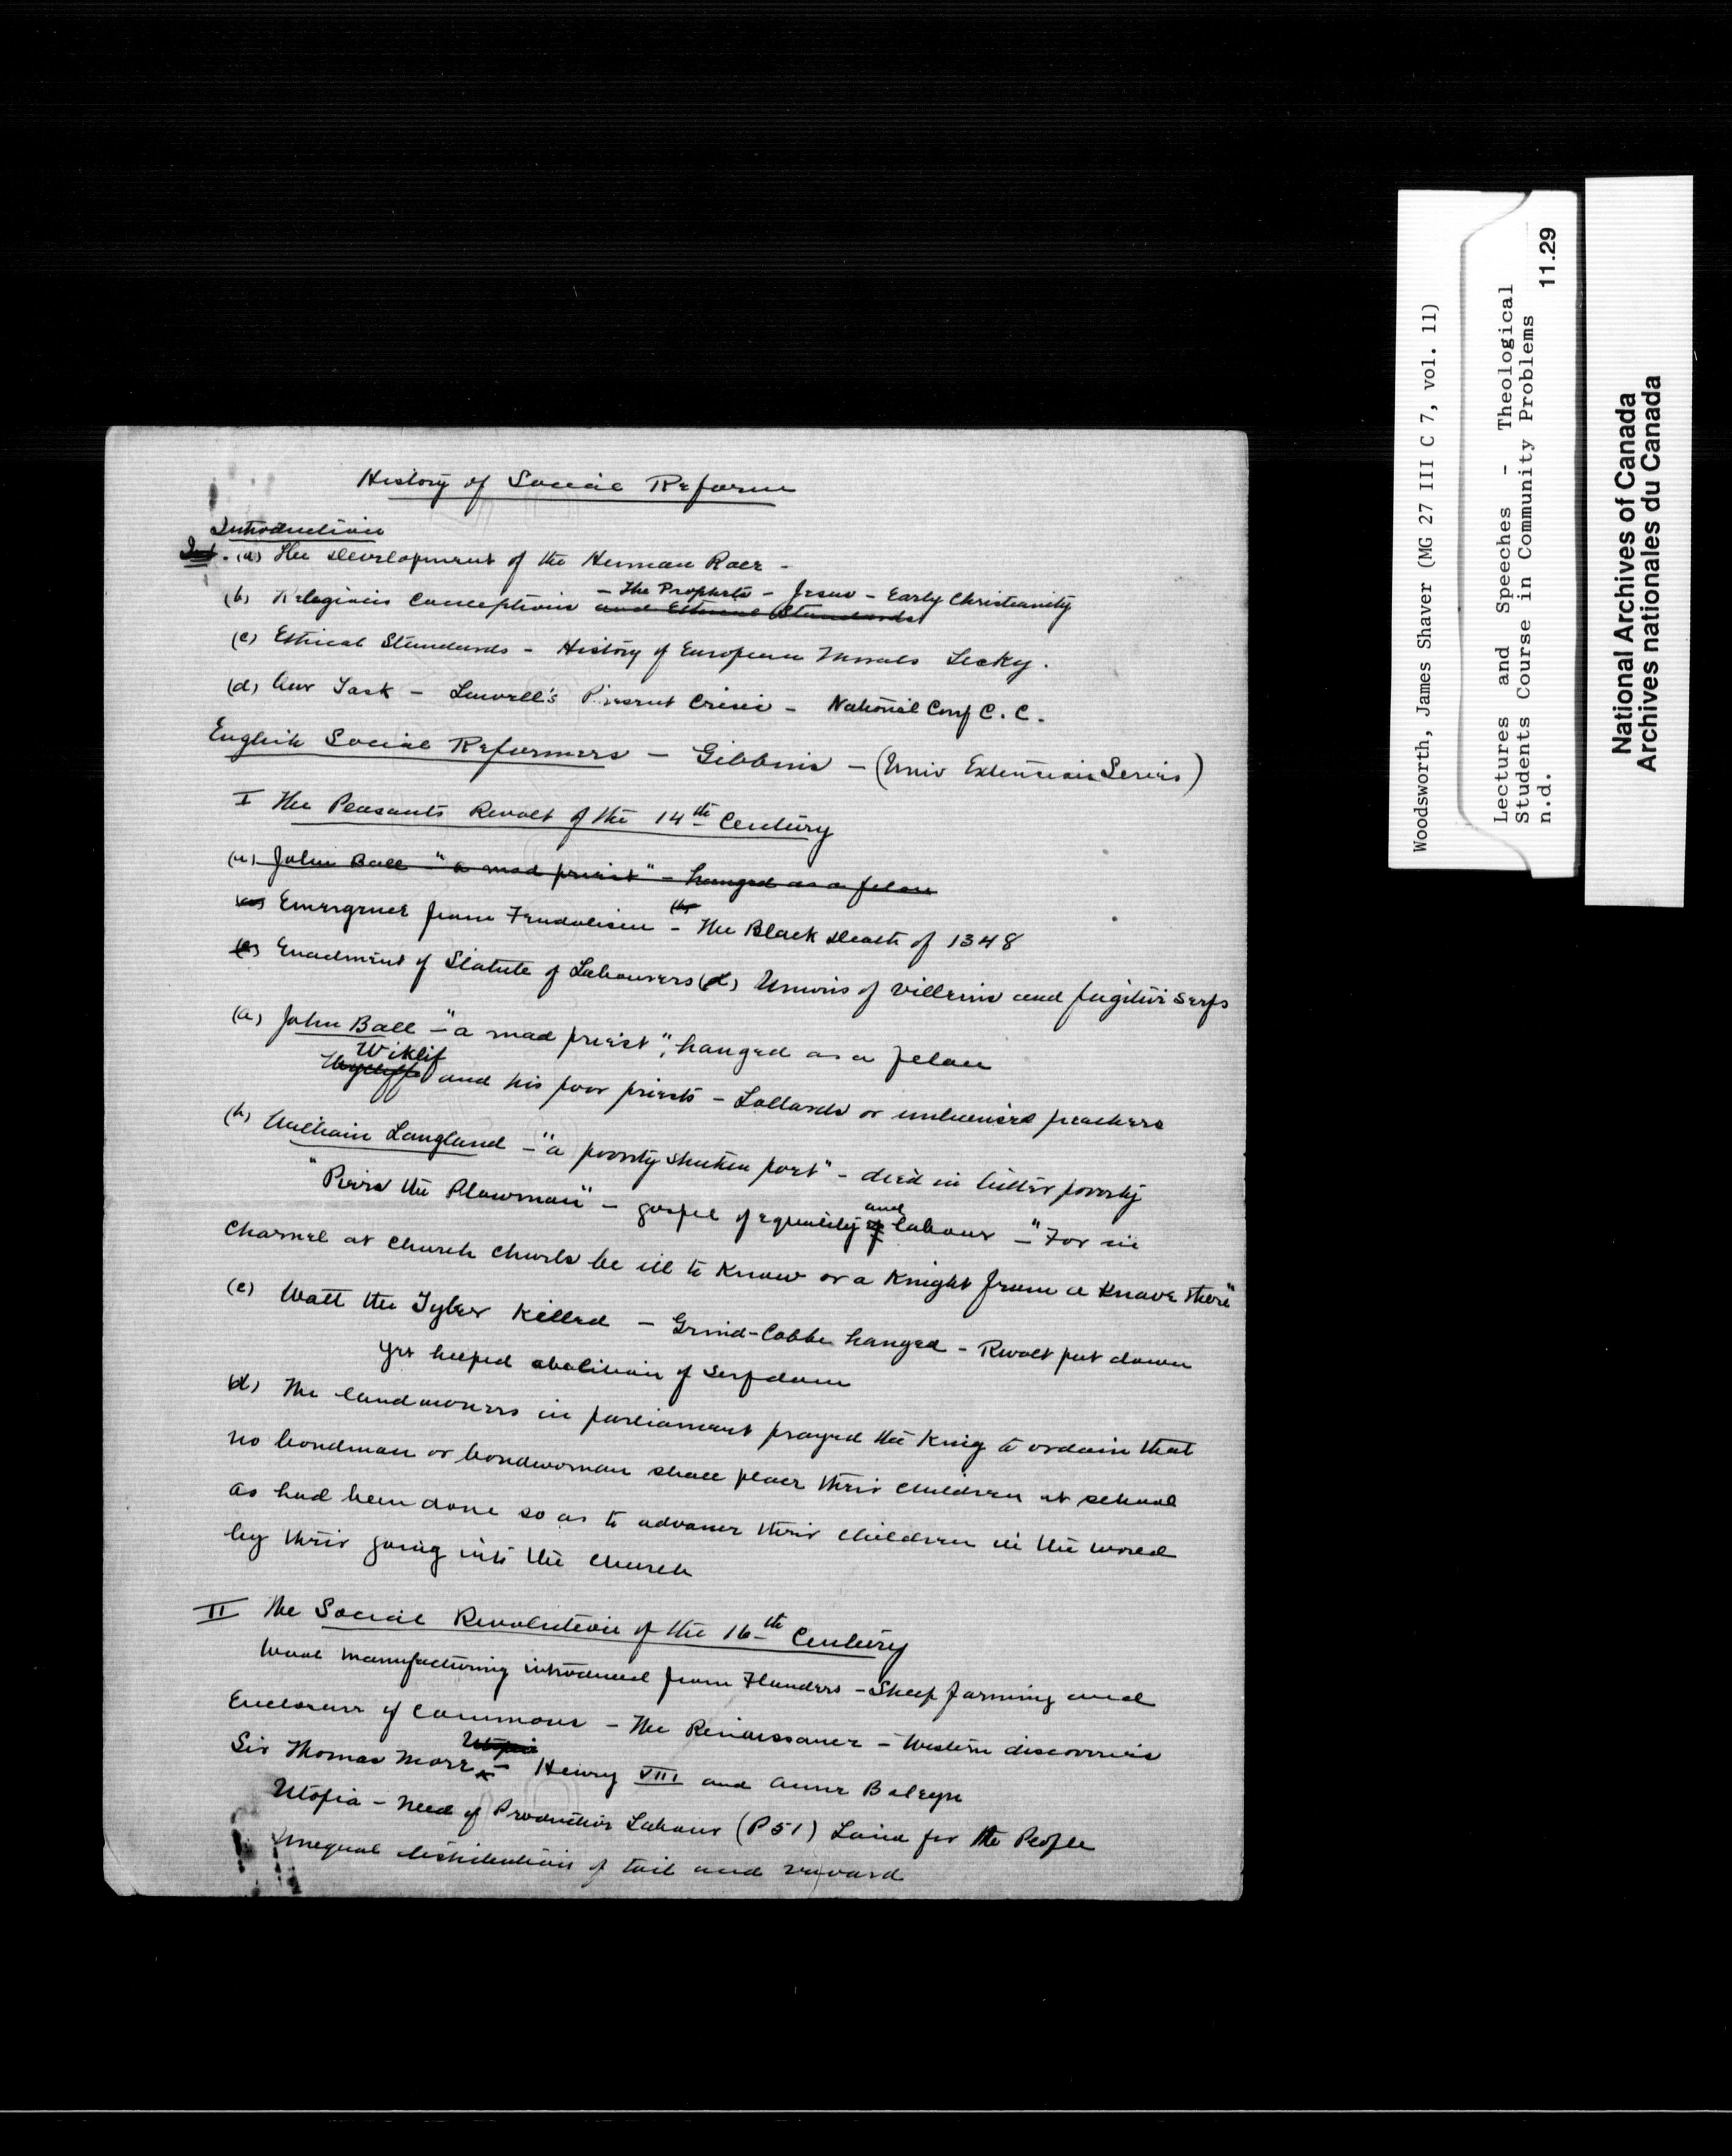 History of Social Reform
Introduction
Int. (a) The Development of the Human Race -
- The Prophets - Jesus - Early Christianity
(b) Religious Conceptions and Ethical Standards
(c) Ethical Standards - History of European Morals Lecky.
(d) Our Task - Lowell's Present Crisis - National Conf C. C.
English Social Reformers - Gibbins - (Univ Extension Series)
I The Peasants Revolt of the 14th Century
(a) John Ball "a mad priest" - hanged as a felon
(a) Emergence from Feudalism - (b) The Black Death of 1348
(c) Enactment of Statute of Labourers (d) Unions of villeins and fugitive serfs
(a) John Ball - "a mad priest", hanged as a felon
Wiklif
Wycliffe and his poor priests - Lollards or unlicensed preachers
(b) William Langland - "a poverty stricken poet" - died in bitter poverty
"Piers the Plowman" - gospel of equality of and labour - "For in
Charnel at Church Churls be ill to Know or a Knight from a Knave there"
(c) Watt the Tyler Killed - Grind-Cobbe hanged - Revolt put down
Yet helped abolition of Serfdom
(d) The landowners in parliament prayed the King to ordain that
no bondman or bondwoman shall place their children at school
as had been done so as to advance their children in the world
by their going into the church
II The Social Revolution of the 16th Century
Wool manufacturing introduced from Flanders - Sheep farming and
Enclosure of Commons - The Renaissance - Western discoveries
Utopia
Sir Thomas More - Henry VIII and Anne Boleyn
Utopia - Need of Productive Labour (P 51) Land for the People
Unequal distribution of toil and reward
Woodsworth, James Shaver (MG 27 III C 7, vol. 11)
Lectures and Speeches - Theological
Students Course in Community Problems
n.d. 11.29
National Archives of Canada
Archives nationales du Canada